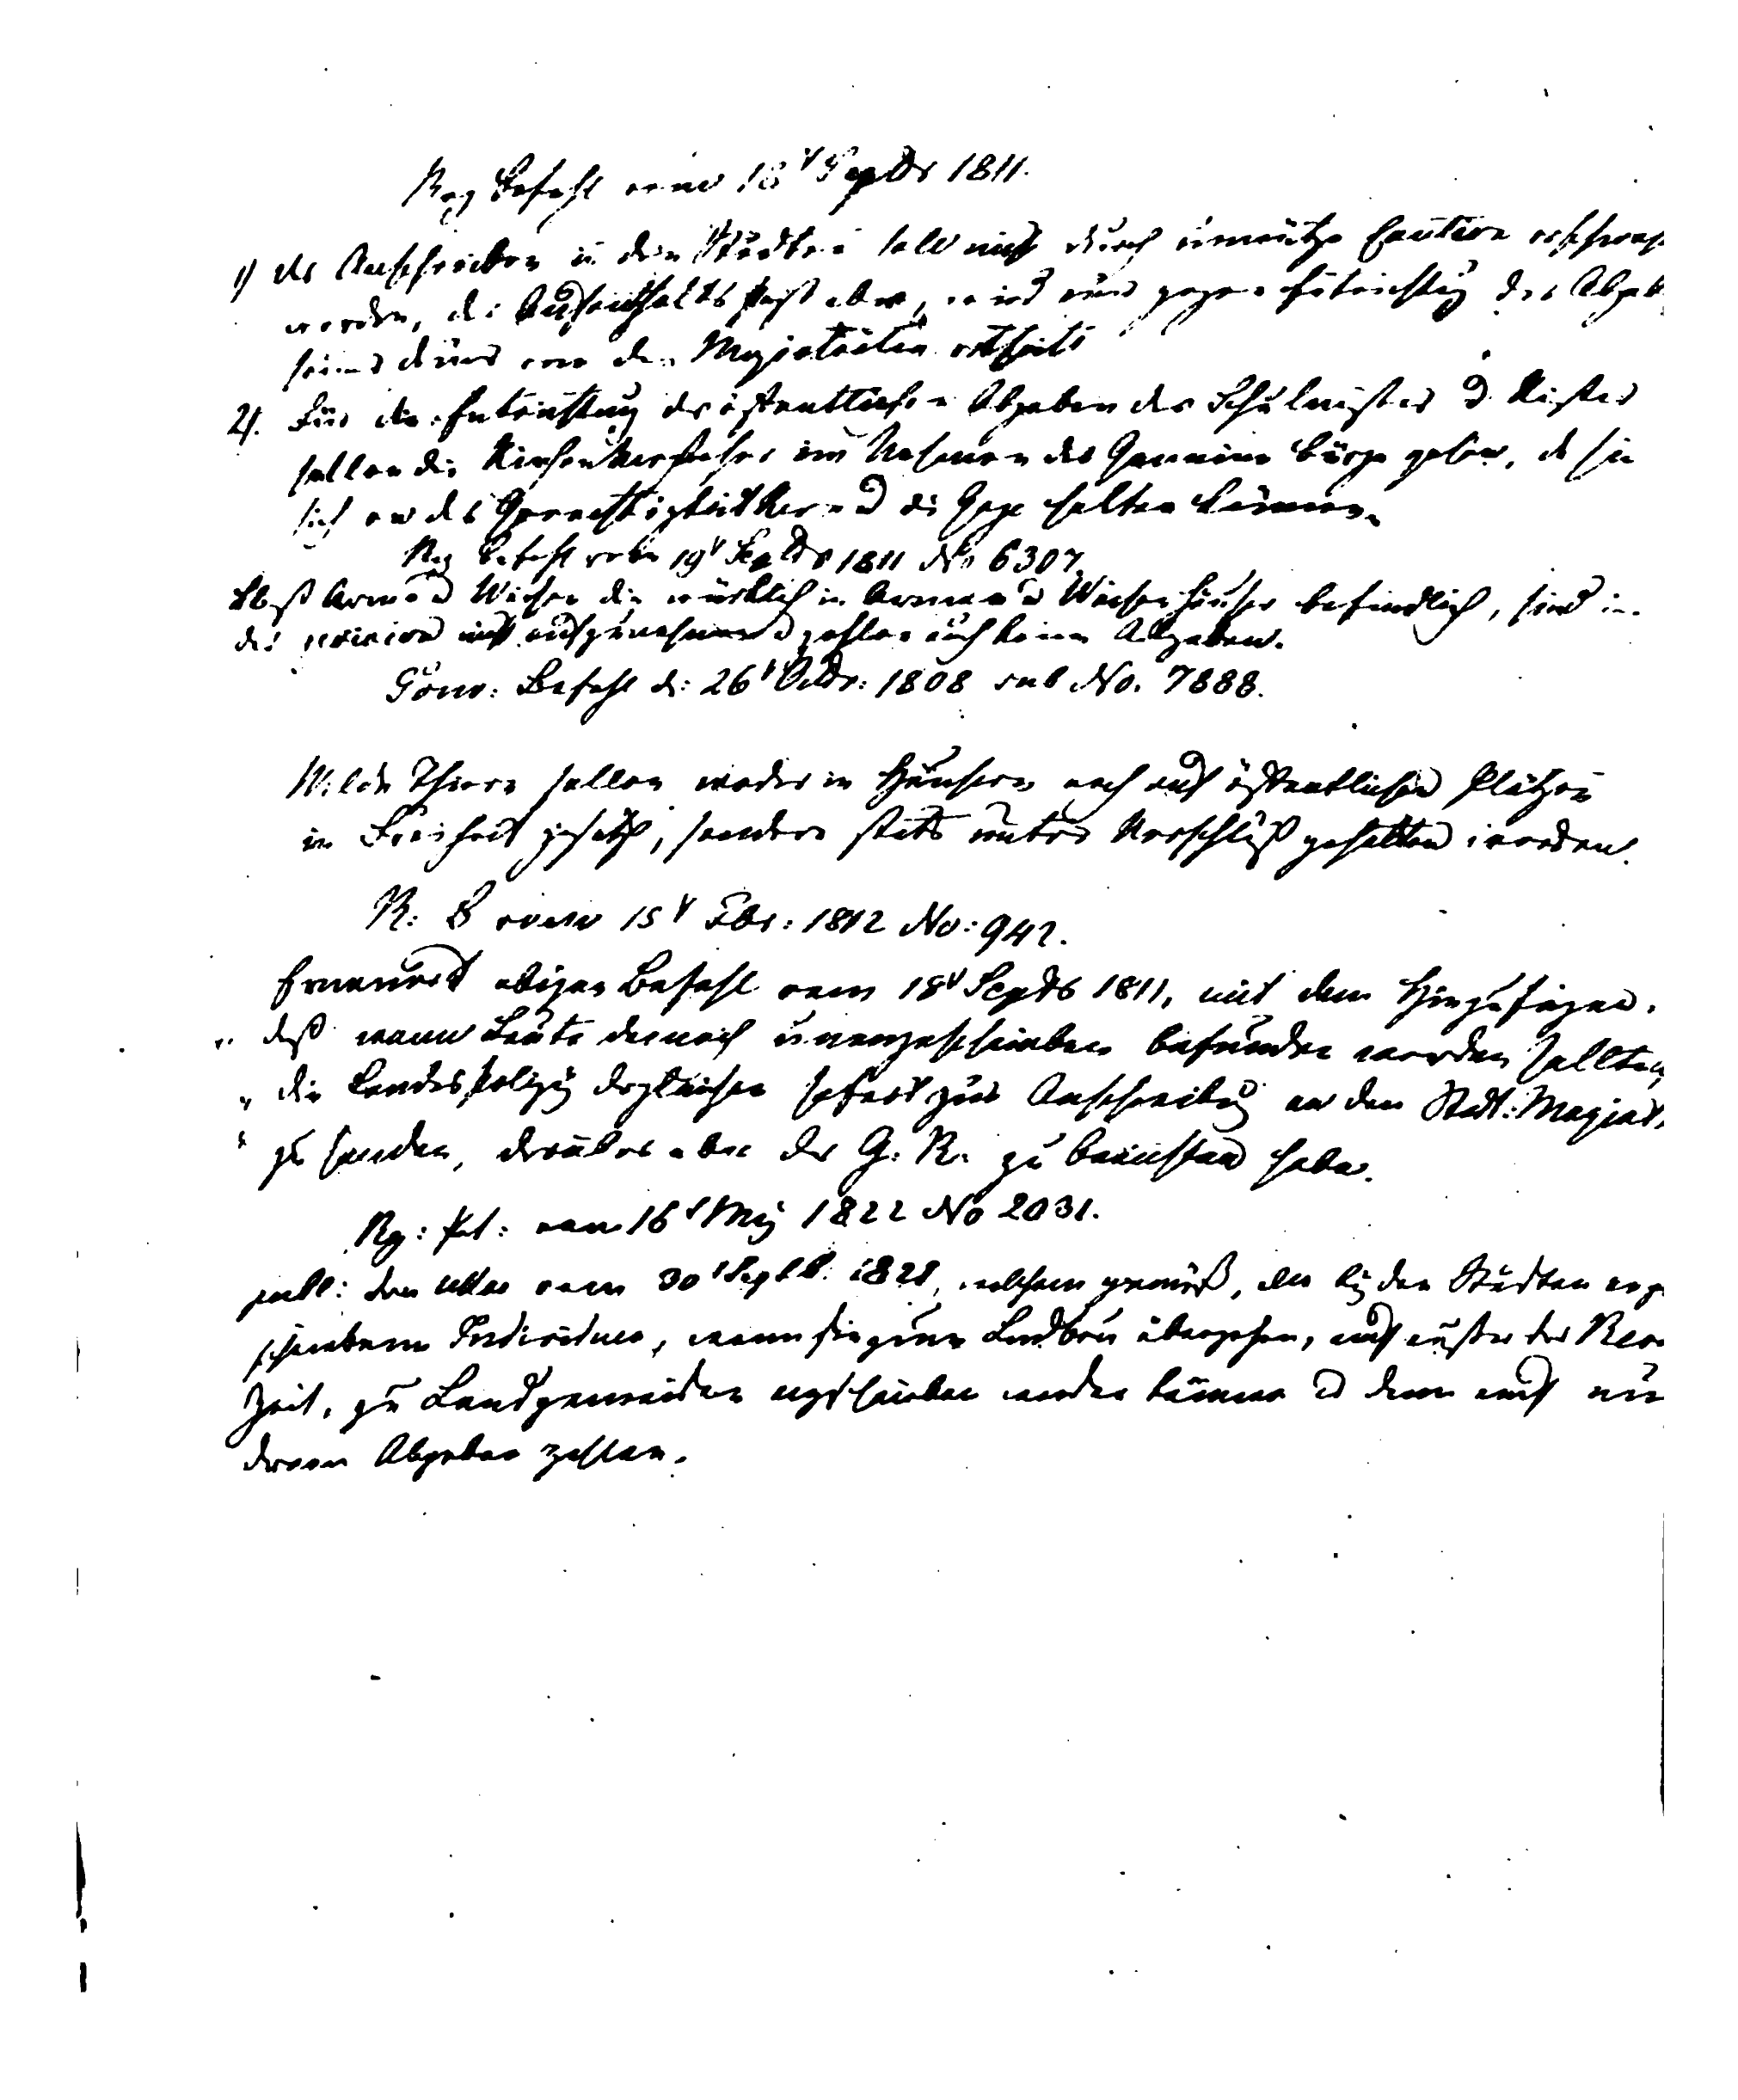 Reg Befehl vom 18t Septbr 1811.
1) das Anschreiben in den Städten soll nicht durch unnütze Caution erschwert
werden, der Aufenthalts Pass aber, wird nur gegen Entrichtung der Abgab
seines dem von den Magistraten ertheilt
2). Für die Entrichtung der öffentlichen Abgaben der Schulmeister u Küster
sollen die Kirchenvorsteher im Nahmen der Gemeine Bürge geben, da sie
sich an der Gerechtigkeit u die Gage halten können.
Reg Befehl vom 19t Septbr 1811 No 6307.
Arme u Waisen die würklich in Armen u Waisenhäuser befindlich, sind in
der revision nicht aufzunehmen u zahlen auch keine Abgaben.
Gouv: Befehl d: 26t Octbr: 1808 sub No. 7888.
Wilde Thiere sollen weder in Häusern noch auf öffentlichen Plätzen
in Freiheit gesetzt, sondern stets unter Verschluß gehalten werden.
R: B vom 15t Fbr: 1812 No: 942.
Erneuert obigen Befehl vom 18t Septbr 1811, mit dem Hinzufügen,
" daß wenn Leute dennoch unangeschrieben befunden werden sollten,
" die Landespolizey dergleichen sofort zur Anschreibung an den Stadt: Magist.
" zu senden, darüber aber der G. R. zu berichten habe.
Rg: Pat: vom 16t May 1822 No 2031.
publ: den Ukas vom 30t Septbr. 1821, welchem gemäß, die bey den Städten ange
schriebenen Individuen, wenn sie zum Landbau übergehen, auch außer der Rev.
Zeit, zu Landgemeinden angeschrieben werden können u dann auch nur
deren Abgaben zahlen.